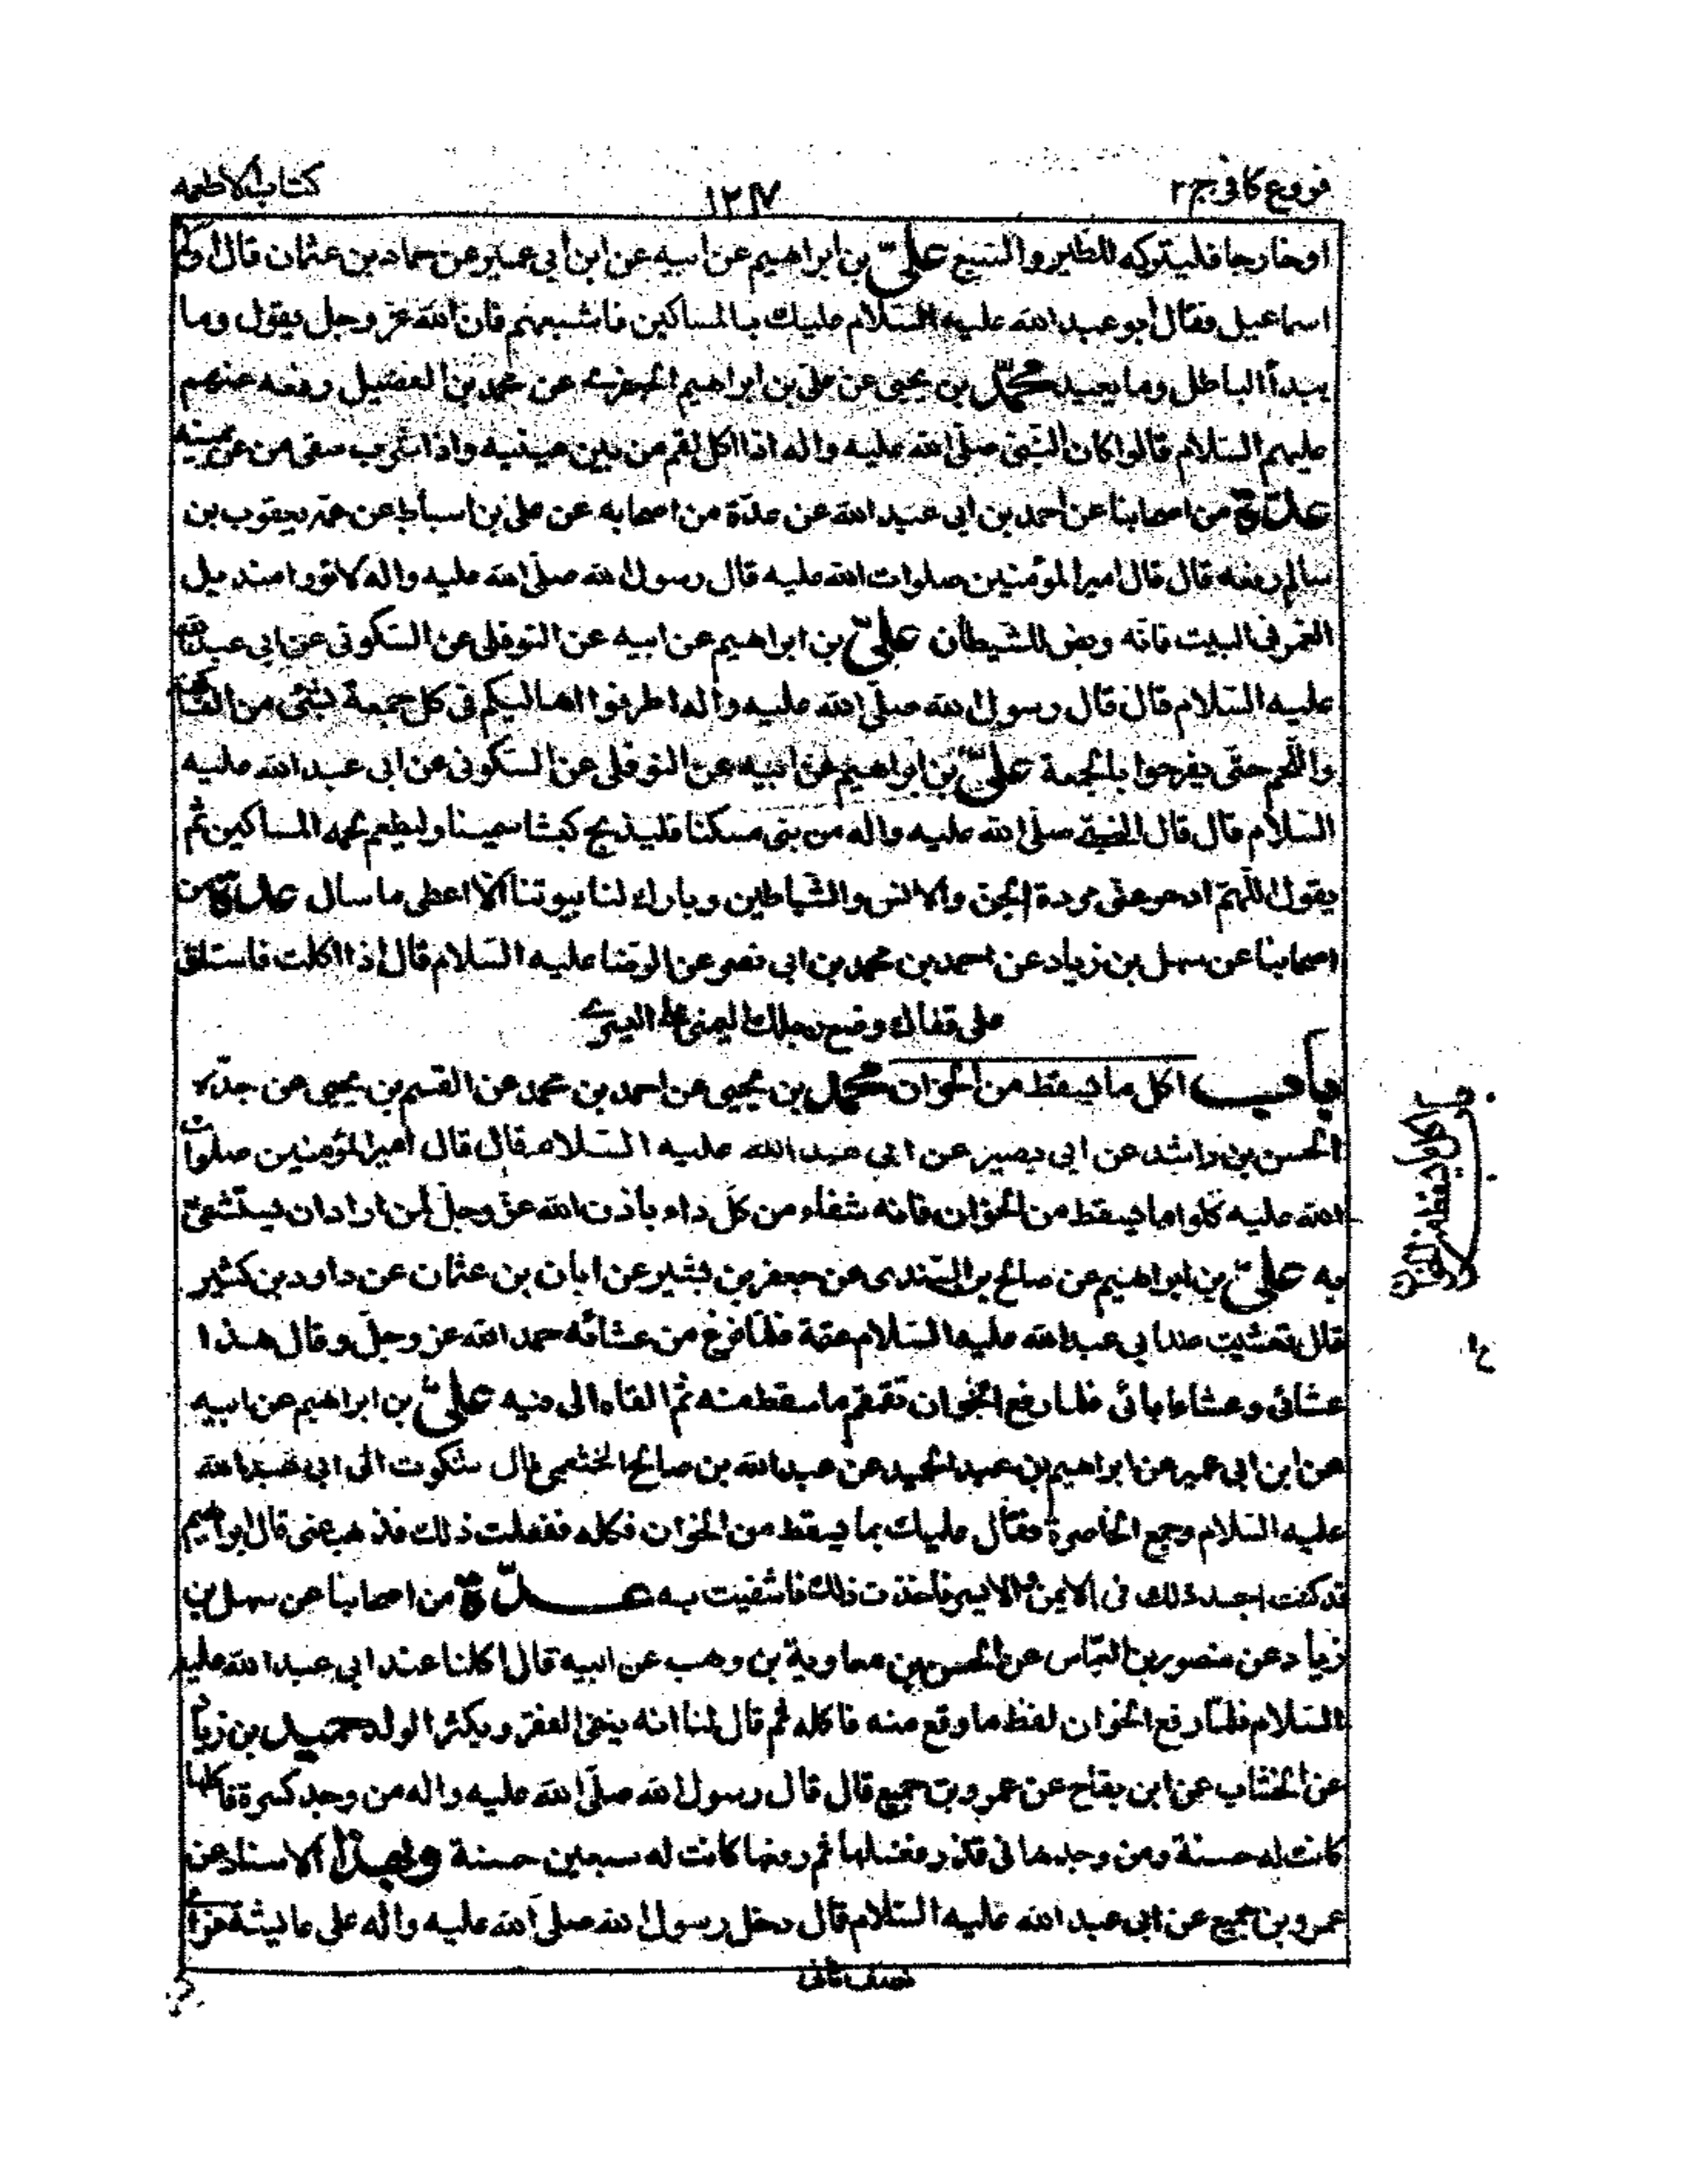 فروع كافي ج٢
١٢٧
كتاب الاطعمه
اوخارجا فليتركه للطير والسبع علىّ بن ابراهيم عن ابيه عن ابن ابي عمير عن حماد بن عثمان قال اولم
اسماعيل فقال ابو عبد الله عليه السّلام عليك بالمساكين فاشبعهم فان الله عزّ وجل يقول وما
يبدأ الباطل وما يعيد محمّد بن يحيى عن علىّ بن ابراهيم الجعفرى عن محمد بن الفضيل رفعه عنهم
عليهم السّلام قالوا كان النّبىّ صلّى الله عليه واله اذا اكل لقم من بين عينيه واذا شرب سقى من عن يمينه
عدّة من اصحابنا عن احمد بن ابي عبد الله عن عدّة من اصحابه عن على بن اسباط عن عمّه يعقوب بن
سالم رفعه قال قال امير المؤمنين صلوات الله عليه قال رسول الله صلّى الله عليه واله لا تؤوا منديل
الغمر فى البيت فانّه مربض للشيطان علىّ بن ابراهيم عن ابيه عن النوفلى عن السكونى عن ابي عبد الله
عليه السّلام قال قال رسول الله صلّى الله عليه واله اطرفوا اهاليكم فى كل جمعة بشئ من الفاكهة
واللّحم حتّى يفرحوا بالجمعة علىّ بن ابراهيم عن ابيه عن النوفلى عن السّكونى عن ابى عبد الله عليه
السّلام قال قال النبى صلّى الله عليه واله من بنى مسكنا فليذبح كبشا سمينا وليطعم لحمه المساكين ثم
يقول اللّهمّ ادحر عنّى مردة الجن والانس والشّياطين وبارك لنا بيوتنا الّا اعطى ما سال عدّة من
اصحابنا عن سهل بن زياد عن احمد بن محمد بن ابى نصر عن الرضا عليه السّلام قال اذا اكلت فاستلق
على قفاك وضع رجلك اليمنى على اليسرى
باب اكل ما يسقط من الخوان محمّد بن يحيى عن احمد بن محمد عن القسم بن يحيى عن جدّه
الحسن بن راشد عن ابى بصير عن ابى عبد الله عليه السّلام قال قال امير المؤمنين صلوات
الله عليه كلوا ما يسقط من الخوان فانه شفاء من كلّ داء باذن الله عزّ وجلّ لمن اراد ان يستشفى
به علىّ بن ابراهيم عن صالح بن السّندى عن جعفر بن بشير عن ابان بن عثمان عن داود بن كثير
قال تعشيت عند ابى عبد الله عليه السّلام عتمة فلمّا فرغ من عشائه حمد الله عز وجلّ وقال هذا
عشائى وعشاء ابائى فلما رفع الخوان تقمّم ما سقط منه ثم القاه الى فيه علىّ بن ابراهيم عن ابيه
عن ابن ابى عمير عن ابراهيم بن عبد الحميد عن عبد الله بن صالح الخثعمى قال شكوت الى ابى عبد الله
عليه السّلام وجع الخاصرة فقال عليك بما يسقط من الخوان فكله ففعلت ذلك فذهب عنى قال ابراهيم
قد كنت اجد ذلك فى الايمن والايسر فاخذت ذلك فاشفيت به عدّة من اصحابنا عن سهل بن
زياد عن منصور بن العبّاس عن الحسن بن معاوية بن وهب عن ابيه قال اكلنا عند ابى عبد الله عليه
السّلام فلمّا رفع الخوان لقط ما وقع منه فاكله ثم قال لنا انه ينفى الفقر ويكثر الولد حميد بن زياد
عن الخشّاب عن ابن بقاح عن عمرو بن جميع قال قال رسول الله صلّى الله عليه واله من وجد كسرة فاكلها
كانت له حسنة ومن وجدها فى قذر فغسلها ثم رفعها كانت له سبعين حسنة وبهذا الاسناد عن
عمرو بن جميع عن ابى عبد الله عليه السّلام قال دخل رسول الله صلى الله عليه واله على عايشة فراى
نصف ثانى